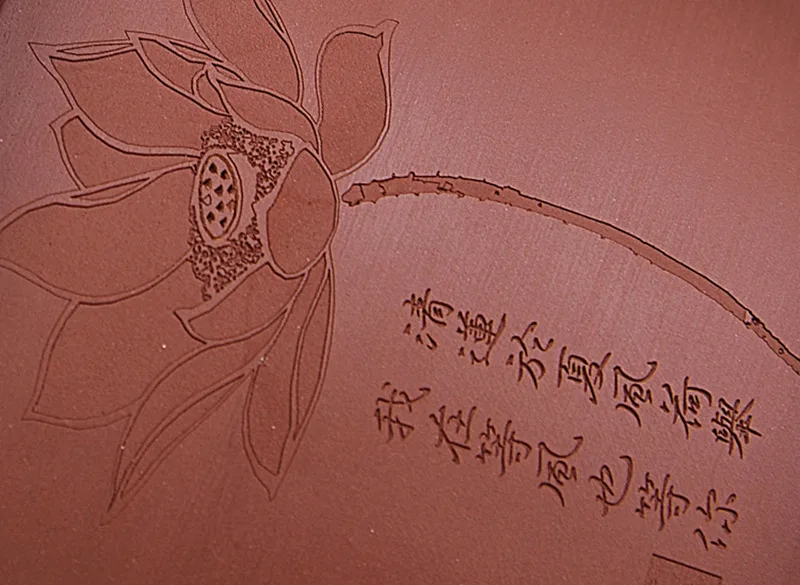 清蓮於夏風荷舉
我在等風也等你